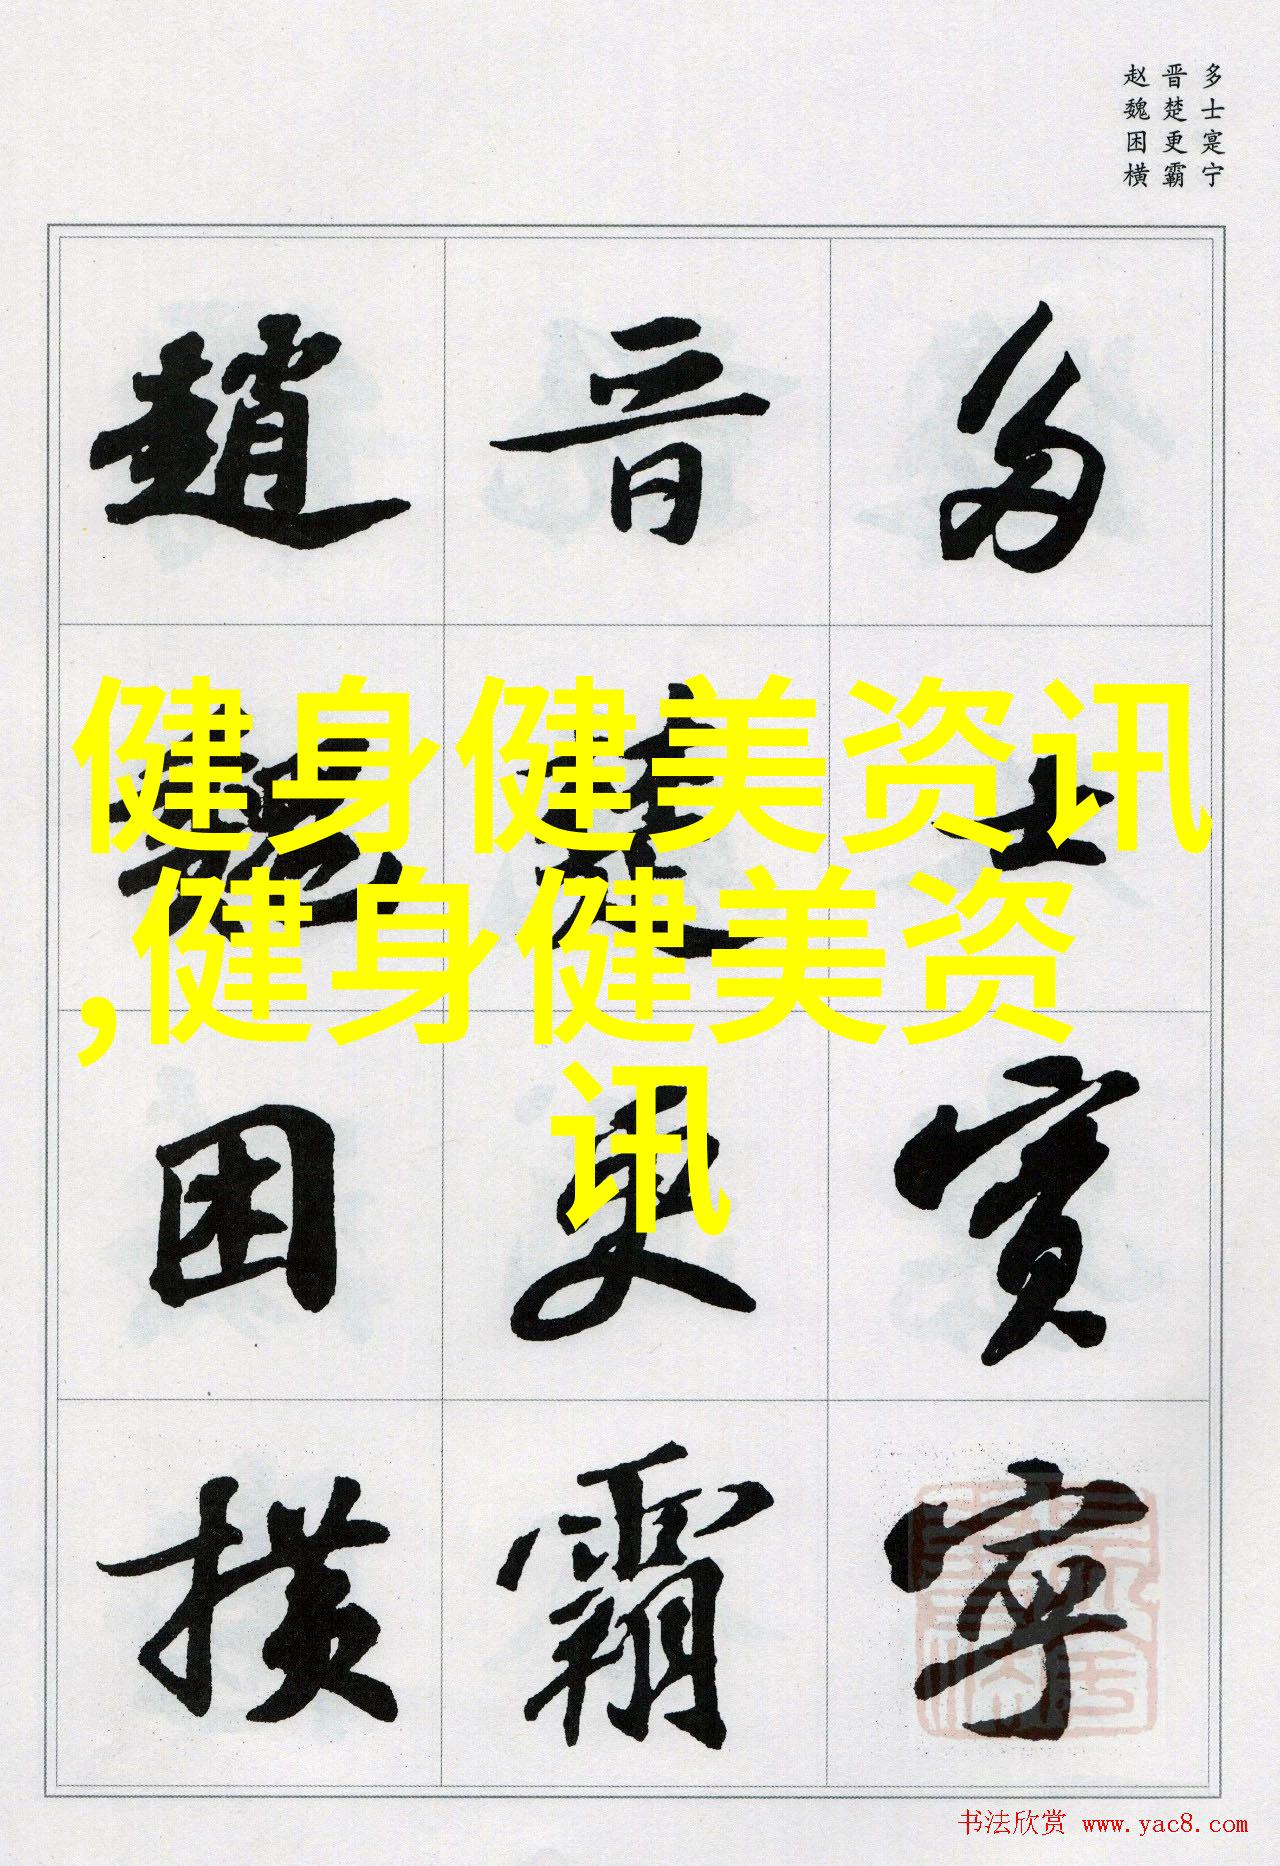 多士寔宁
晋楚更霸
赵魏困横
多士實寧
晋楚更霸
趙魏困横
健身健美资讯
,健身健美资
讯
书法欣赏 www.yac8.com